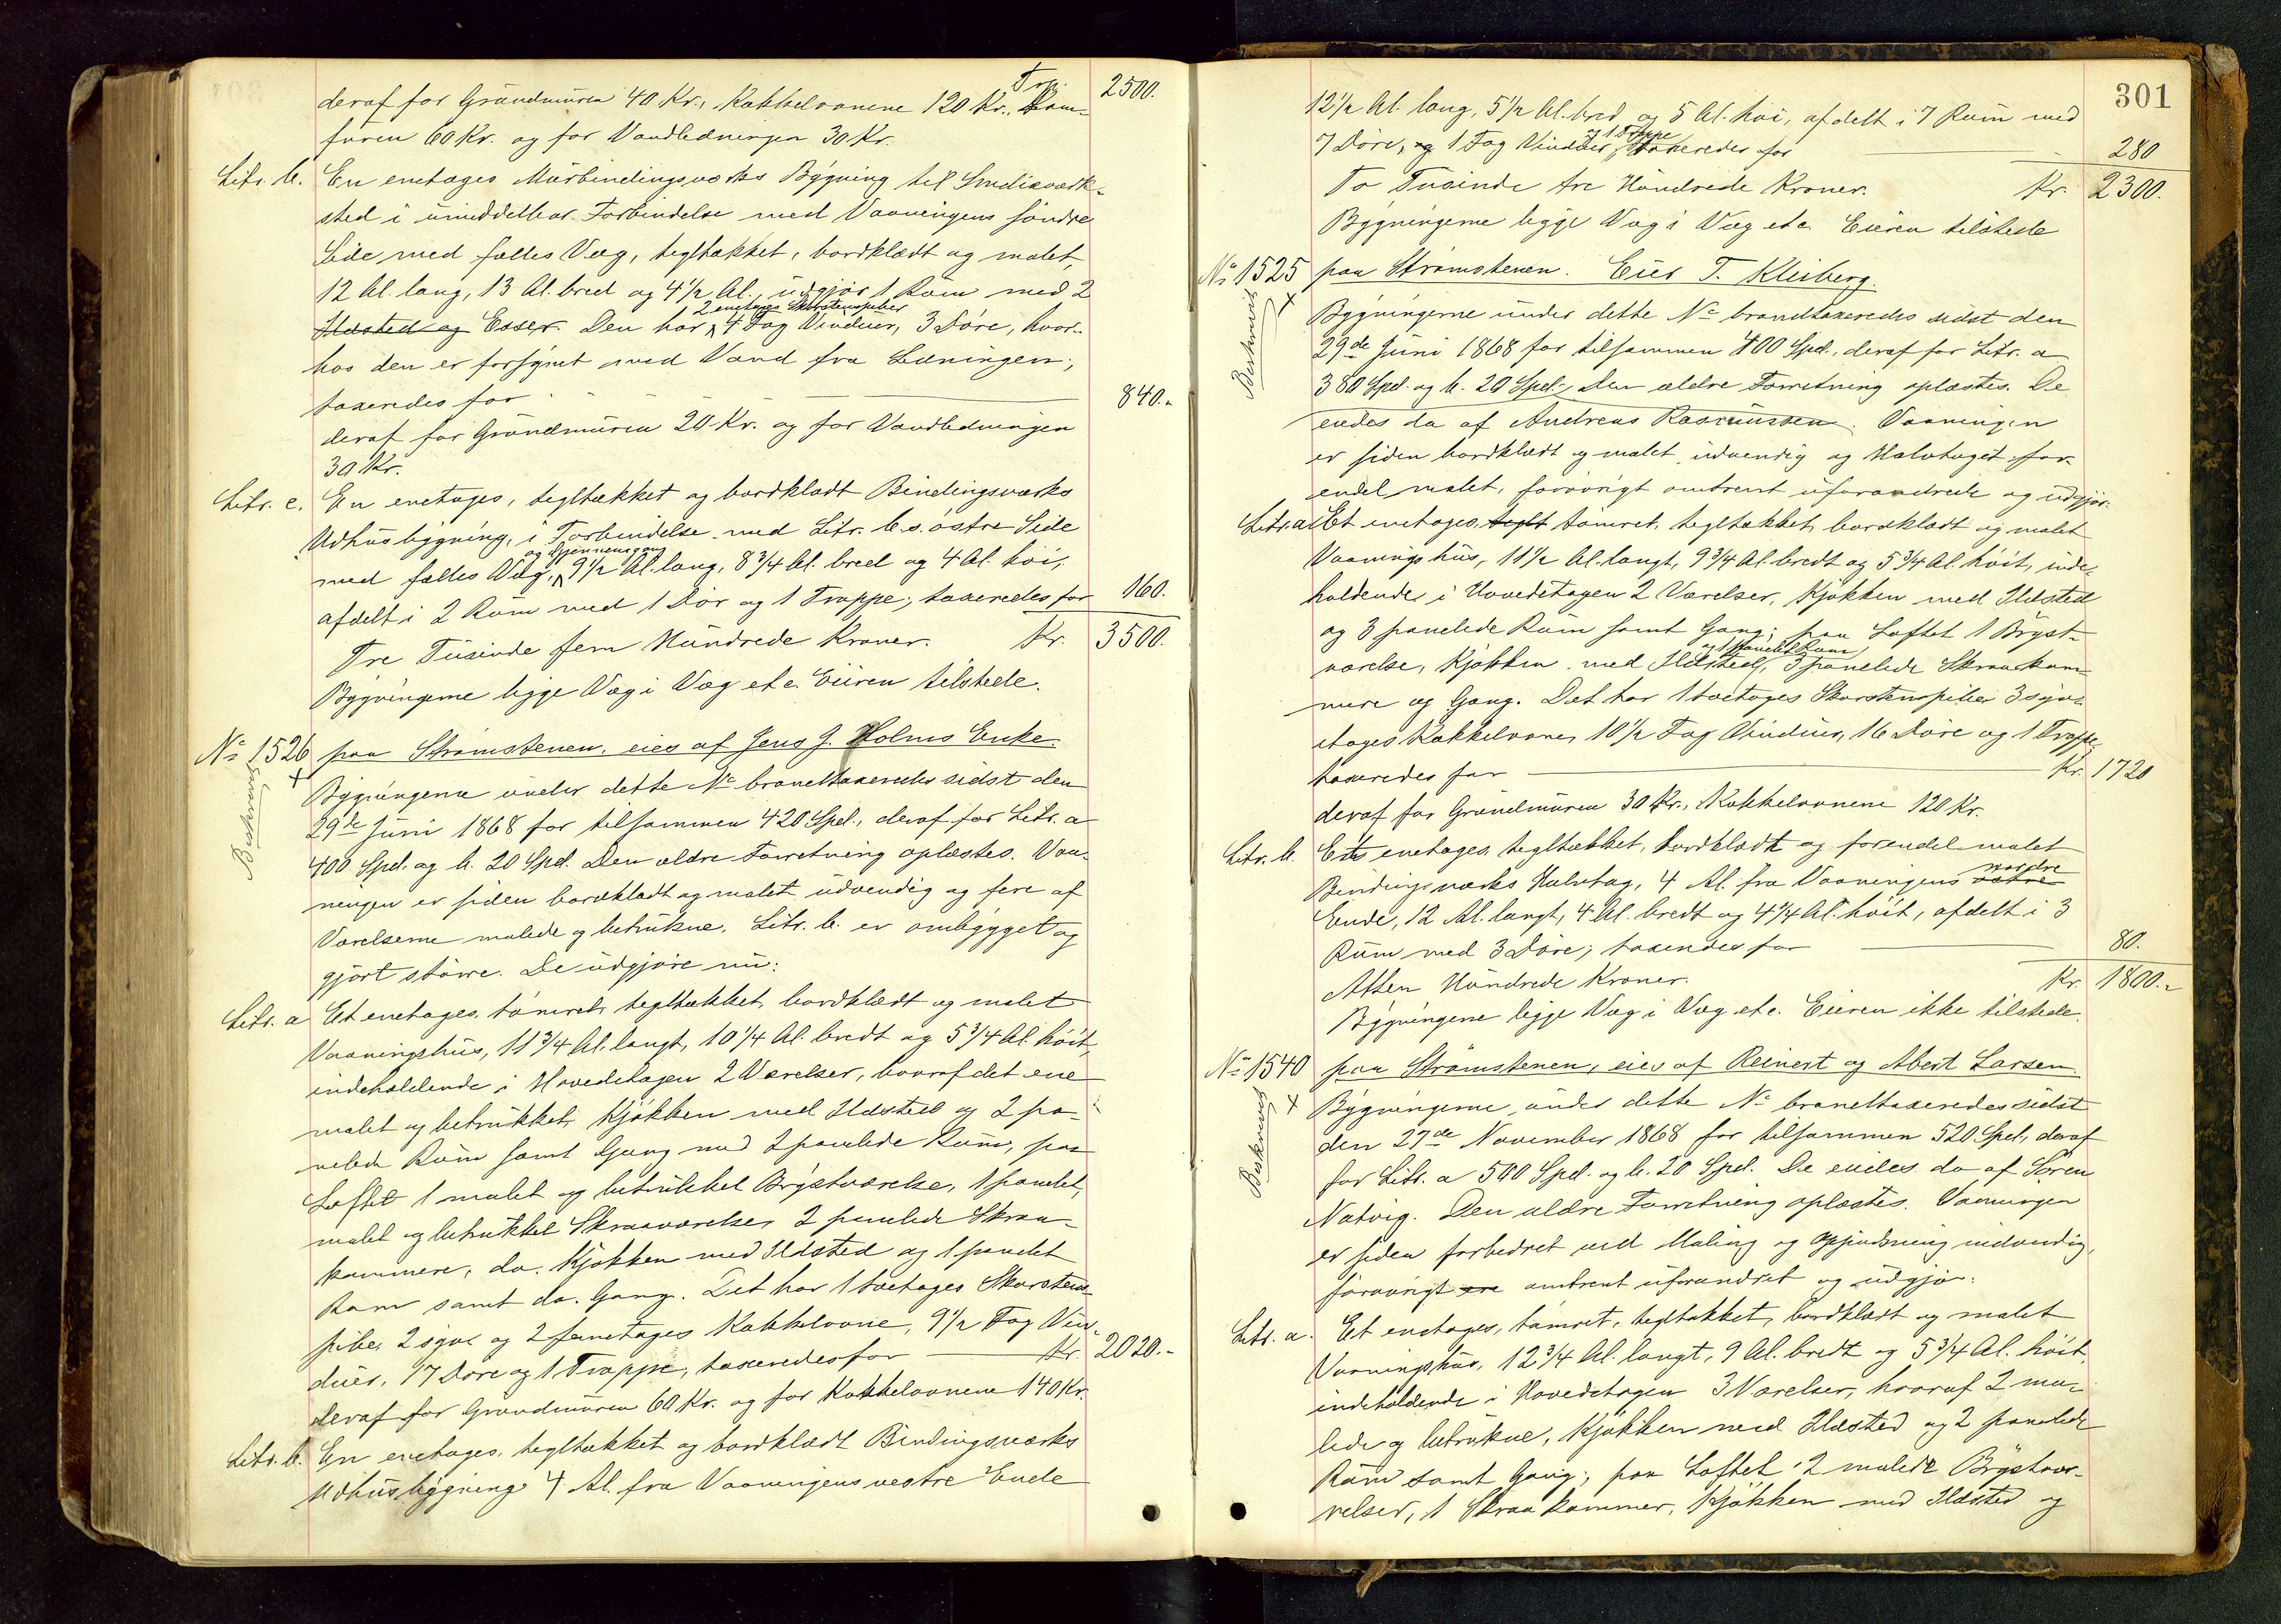 deraf for Grundmuren 40 Kr., Kakkelovnene 120 Kr., Kom- 2500.
furen 60 Kr. og for Vandledningen 30 Kr.
Litr. b. En enetages Murbindingsværks Bygning til Smedieværk-
sted i umiddelbar Forbindelse med Vaaningens søndre
Side med fælles Væg, tegltækket, bordklædt og malet,
12 Al. lang, 13 Al. bred og 4 1/2 Al., udgjør 1 Rum med 2
2 enetages Skorstenspiber
Ildsted og Esser. Den har 4 Fag Vinduer, 3 Døre, hvor-
hos den er forsynet med Vand fra Ledningen;
taxeredes for 840.
deraf for Grundmuren 20 Kr. og for Vandledningen
30 Kr.
Litr. c. En enetages, tegltækket og bordklædt Bindingsværks
Udhusbygning, i Forbindelse med Litr. b.s. østre Side
og Gjennemgang
med fælles Væg, 9 1/2 Al. lang, 8 3/4 Al. bred og 4 Al. høi,
afdelt i 2 Rum med 1 Dør og 1 Trappe, taxeredes for 160.
Tre Tusinde fem Hundrede Kroner. Kr. 3500.
Bygningerne ligge Væg i Væg etc. Eieren tilstede.
No 1526 paa Strømstenen, eies af Jens J. Holms Enke.
Beskrevet
Bygningerne under dette No brandtaxeredes sidst den
29de Juni 1868 for tilsammen 420 Spd., deraf for Litr. a
400 Spd. og b. 20 Spd. Den ældre Forretning oplæstes. Vaa-
ningen er siden bordklædt og malet udvendig og flere af
Værelserne malede og betrukne. Litr. b. er ombygget og
gjort større. De udgjøre nu:
Litr. a Et enetages, tømret, tegltækket, bordklædt og malet
Vaaningshus, 11 3/4 Al. langt, 10 1/4 Al. bredt og 5 3/4 Al. høit,
indeholdende i Hovedetagen 2 Værelser, hvoraf det ene
malet og betrukket, Kjøkken med Ildsted og 2 pa-
nelede Rum samt Gang med 2 panelede Rum, paa
Loftet 1 malet og betrukket Brystværelse, 1 panelet,
malet og betrukket Skraaværelse, 2 panelede Skraa-
kammere, do. Kjøkken med Ildsted og 1 panelet
Rum samt do. Gang. Det har 1 toetages Skorstens-
pibe, 2 syv og 2 femetages Kakkelovne, 9 1/2 Fag Vin-
duer, 17 Døre og 1 Trappe, taxeredes for Kr. 2020.-
deraf for Grundmuren 60 Kr. og for Kakkelovnene 140 Kr.
Litr. b. En enetages, tegltækket og bordklædt Bindingsværks
Udhusbygning 4 Al. fra Vaaningens vestre Ende
301
12 1/2 Al. lang, 5 1/2 Al. bred og 5 Al. høi, afdelt i 7 Rum med
og 1 Trappe
7 Døre, og 1 Fag Vinduer, taxeredes for 280
To Tusinde tre Hundrede Kroner. Kr. 2300.
Bygningerne ligge Væg i Væg etc. Eieren tilstede
No 1525 paa Strømstenen. Eier T. Kleiberg.
Beskrevet
Bygningerne under dette No brandtaxeredes sidst den
29de Juni 1868 for tilsammen 400 Spd., deraf for Litr. a
380 Spd. og b. 20 Spd. Den ældre Forretning oplæstes. De
eiedes da af Andreas Rasmussen. Vaaningen
er siden bordklædt og malet udvendig og Halvtaget for-
endel malet, forøvrigt omtrent uforandrede og udgjør:
Litr. a Et enetages, teglt tømret, tegltækket, bordklædt og malet
Vaaningshus, 11 1/2 Al. langt, 9 3/4 Al. bredt og 5 3/4 Al. høit, inde-
holdende i Hovedetagen 2 Værelser, Kjøkken med Ildsted
og 3 panelede Rum samt Gang; paa Loftet 1 Bryst-
og 1 panelet Rum
værelse, Kjøkken med Ildsted, 3 panelede Skraakam-
mere og Gang. Det har 1 toetages Skorstenspibe, 3 syv-
etages Kakkelovne, 10 1/2 Fag Vinduer, 16 Døre og 1 Trappe,
taxeredes for Kr. 1720
deraf for Grundmuren 30 Kr., Kakkelovnene 120 Kr.
Litr. b. Et enetages, tegltækket, bordklædt og forendel malet
nordre
Bindingsværks Halvtag, 4 Al. fra Vaaningens østre
Ende, 12 Al. langt, 4 Al. bredt og 4 1/4 Al. høit, afdelt i 3
Rum med 3 Døre; taxeredes for 80.
Atten Hundrede Kroner. Kr. 1800.-
Bygningerne ligge Væg i Væg etc. Eieren ikke tilstede.
No 1540 paa Strømstenen, eies af Reinert og Abert Larsen.
Beskrevet
Bygningerne under dette No brandtaxeredes sidst
den 27de November 1868 for tilsammen 520 Spd., deraf
for Litr. a 500 Spd. og b. 20 Spd. De eiedes da af Søren
Natvig. Den ældre Forretning oplæstes. Vaaningen
er siden forbedret med Maling og Gibsning indvendig,
forøvrigt ere omtrent uforandret og udgjør:
Litr. a. Et enetages, tømret, tegltækket, bordklædt og malet
Vaaningshus, 12 3/4 Al. langt, 9 Al. bredt og 5 3/4 Al. høit,
indeholdende i Hovedetagen 3 Værelser, hvoraf 2 ma-
lede og betrukne, Kjøkken med Ildsted og 2 panelede
Rum samt Gang; paa Loftet 2 malede Brystvæ-
relser, 1 Skraakammer, Kjøkken med Ildsted og